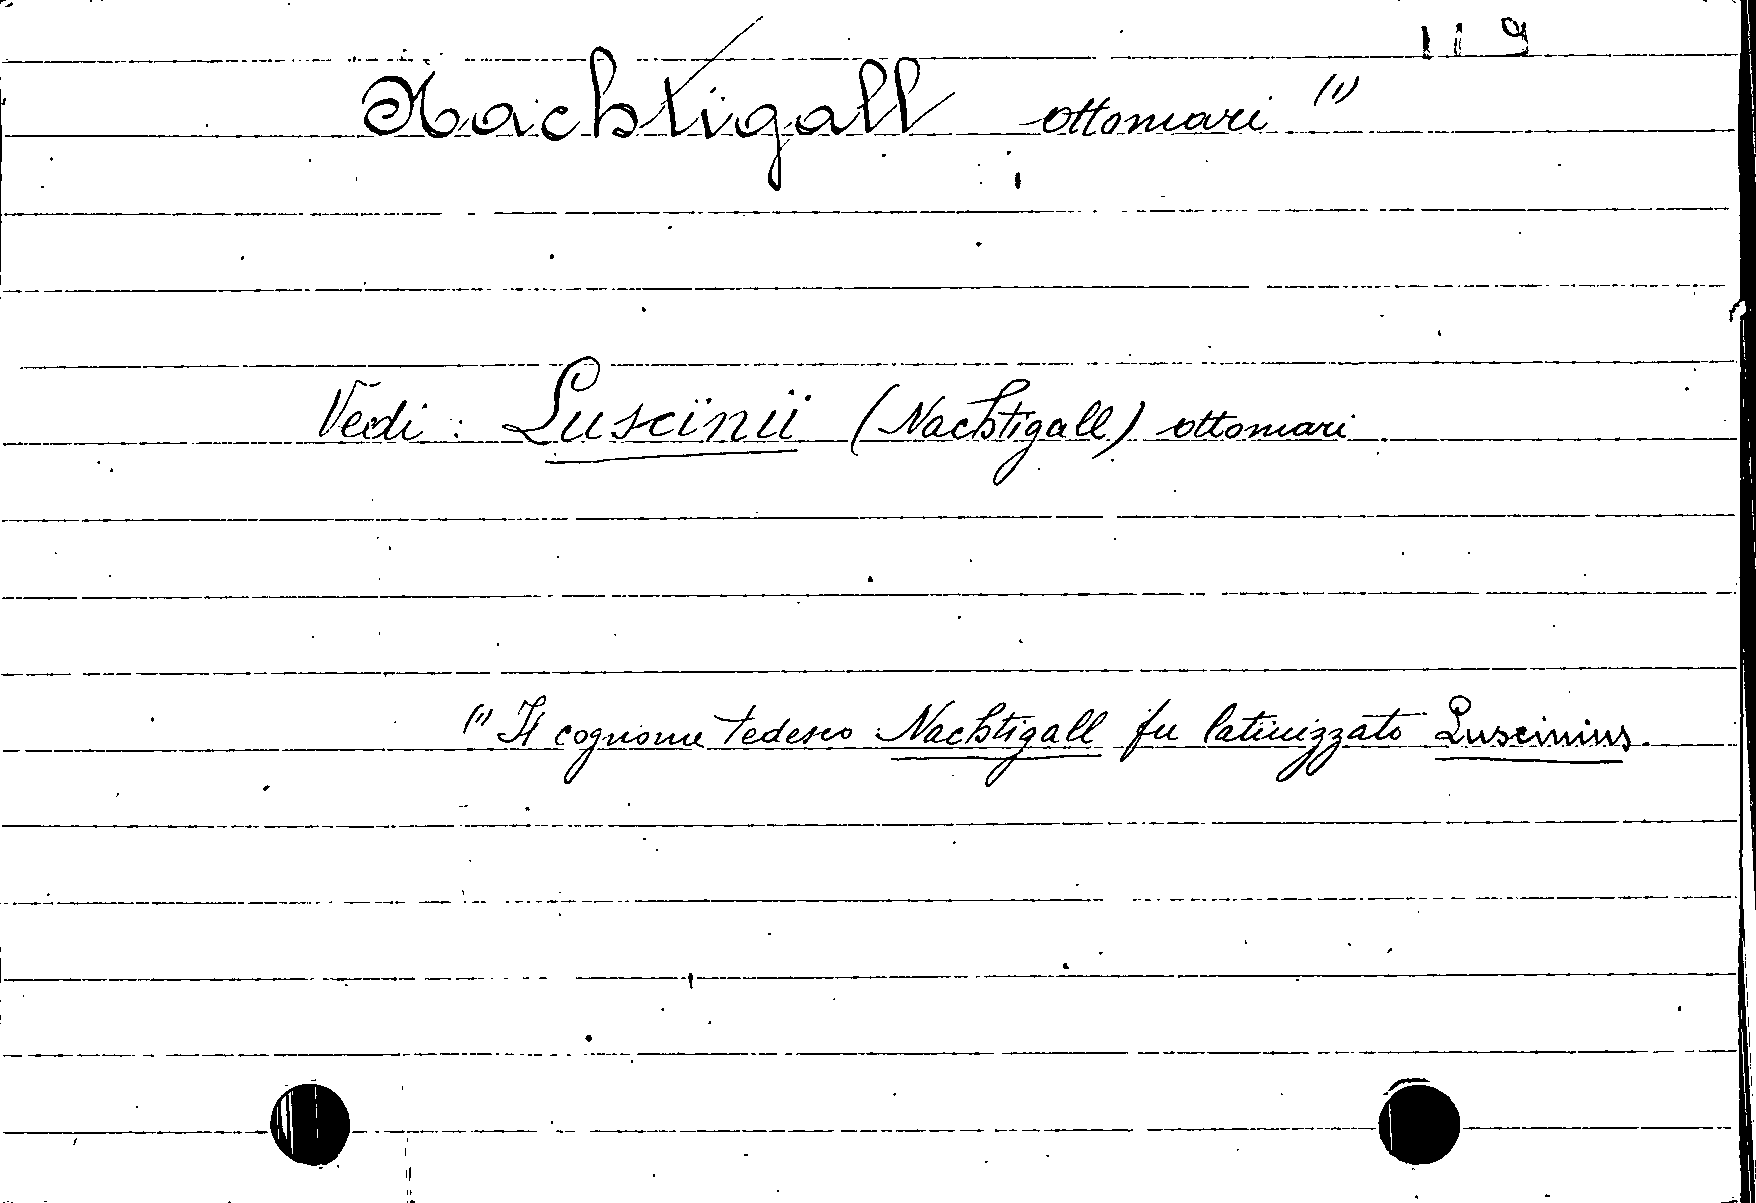 119
Nachtigall ottomari (1)
Vedi: Luscinii (Nachtigall) ottomari
(1) Il cognome tedesco Nachtigall fu latinizzato Luscinius.